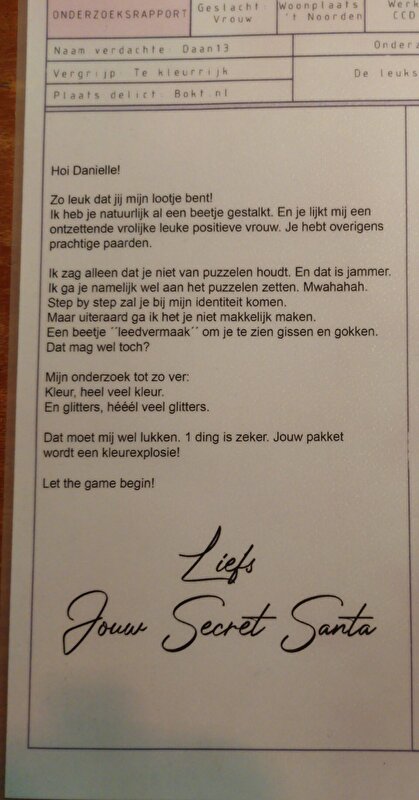 ONDERZOEKSRAPPORT
Geslacht:
Vrouw
Woonplaats
't Noorden
Werk
CCD
Naam verdachte: Daan13
Onderz
Vergrijp: Te kleurrijk
De leuks
Plaats delict: Bokt.nl
Hoi Danielle!
Zo leuk dat jij mijn lootje bent!
Ik heb je natuurlijk al een beetje gestalkt. En je lijkt mij een
ontzettende vrolijke leuke positieve vrouw. Je hebt overigens
prachtige paarden.
Ik zag alleen dat je niet van puzzelen houdt. En dat is jammer.
Ik ga je namelijk wel aan het puzzelen zetten. Mwahahah.
Step by step zal je bij mijn identiteit komen.
Maar uiteraard ga ik het je niet makkelijk maken.
Een beetje ´´leedvermaak´´ om je te zien gissen en gokken.
Dat mag wel toch?
Mijn onderzoek tot zo ver:
Kleur, heel veel kleur.
En glitters, hééél veel glitters.
Dat moet mij wel lukken. 1 ding is zeker. Jouw pakket
wordt een kleurexplosie!
Let the game begin!
Liefs
Jouw Secret Santa